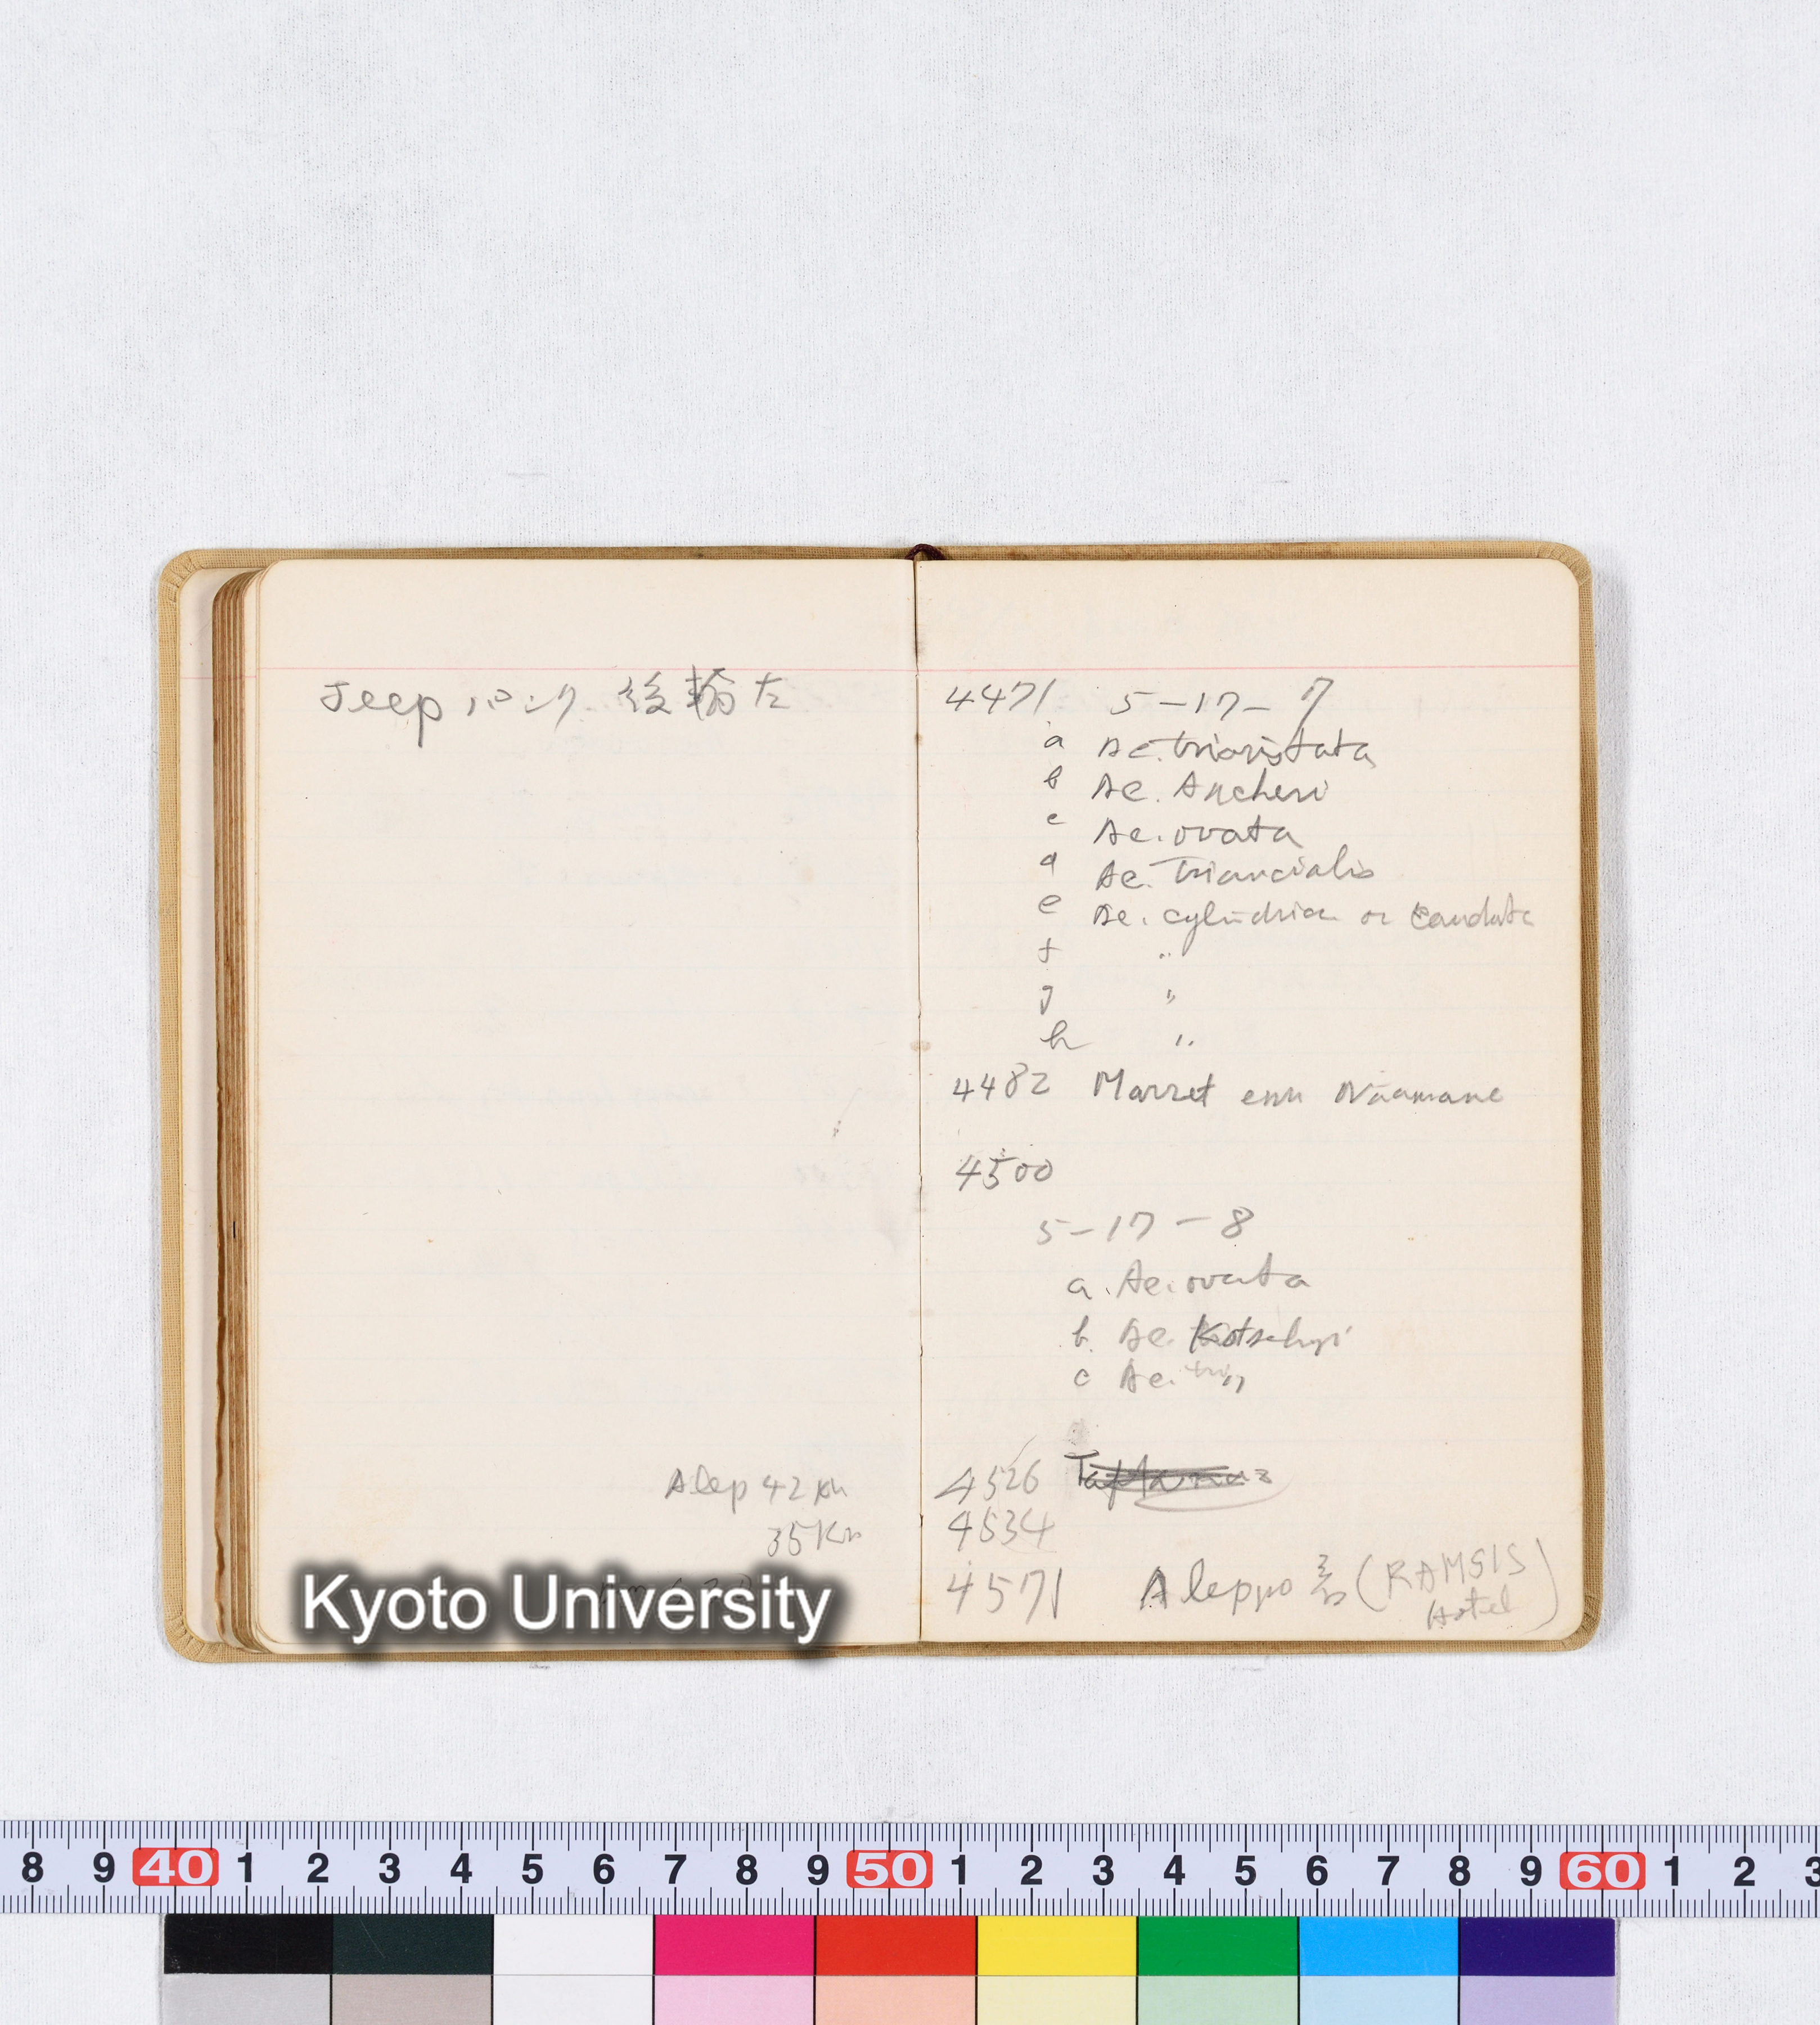 Jeep パンク 後輪左
Alep 42 Km
35 Km
4471 5-17-7
a Ae. triaristata
b Ae. Aucheri
c Ae. ovata
d Ae. Triuncialis
e Ae. cylindrica or Caudata
f "
g "
h "
4482 Marret enn Naamane
4500
5-17-8
a. Ae. ovata
b. Ae. Kotschyi
c Ae. tri "
4526
4534
4571 Aleppo 着 (RAMSIS
Hotel)
Kyoto University
8 9 40 1 2 3 4 5 6 7 8 9 50 1 2 3 4 5 6 7 8 9 60 1 2 3